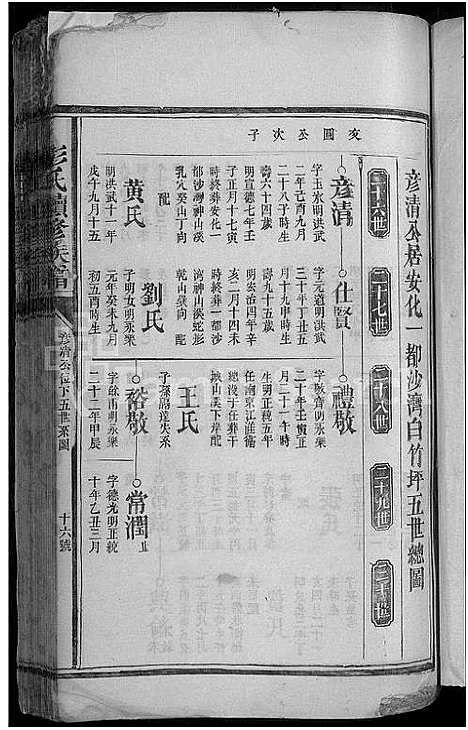 彦清公居安化一都沙灣白竹坪五世總圖
二十六世
二十七世
二十八世
二十九世
三十世
友圓公次子
彦清
字玉水明洪武
二年己酉九月
二十八子時生
壽六十四歲
明宣德七年壬
子正月十七寅
時終葬安化一
都沙灣神山溪
乳穴癸山丁向
配
黄氏
明洪武十一年
戊午九月十五
仕賢
字元道明洪武
三十年丁丑五
月十九申時生
壽九十五歲
明安治四年辛
亥二月十四未
時終葬一都沙
灣神山溪蛇形
乾山巽向配
劉氏
子明女明永樂
元年癸未九月
初五酉時生
禮敬
字敬齊明永樂
二十年壬寅十
月三十一午時
生明正統五年
任南京江淮衛
總旗没於任葬于
城山溪下岸配
王氏
子孫紹遠失系
裕敬
字餘甫明永樂
二十二年甲辰
常潤
字德光明正統
十年乙丑三月
彭氏續修族譜
彦清公位下五世系圖
十六號